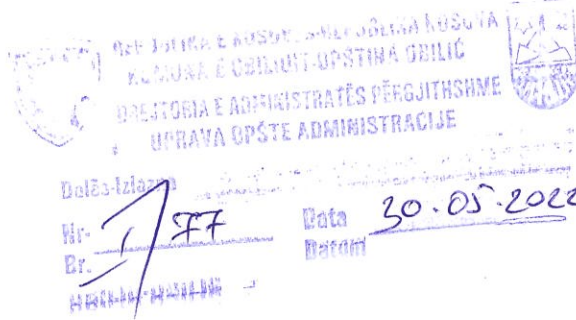 REPUBLIKA E KOSOVËS-REPUBLIKA KOSOVA
KOMUNA E OBILIQIT-OPŠTINA OBILIĆ
DREJTORIA E ADMINISTRATËS PËRGJITHSHME
UPRAVA OPŠTE ADMINISTRACIJE
Dalës-Izlazna
Nr- 1/77 Data 30.05.2022
Br. Datum